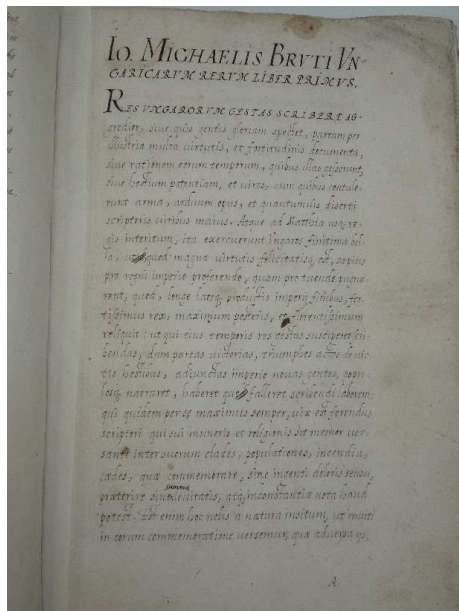 IO. MICHAELIS BRVTI VN-
GARICARVM RERVM LIBER PRIMVS.
RES VNGARORVM GESTAS SCRIBERE AG-
gredior, siue quis gentis gloriam spectet, partam per
illustria multa uirtutis, et fortitudinis documenta,
siue rationem eorum temporum, quibus illas gesserunt,
siue hostium potentiam, et uires, cum quibus contule-
runt arma, arduum opus, et quantumuis diserti
scriptoris uiribus maius. Atque ad Matthiæ usq; re-
gis interitum, ita exercuerunt Vngaros finitima bel-
la, quod magna uirtutis felicitatisq; est, sæpius
pro regni imperio proferendo, quam pro tuendo pugna-
rent, quod, longe lateq; productis imperij finibus, for-
tissimus rex, maximum posteris, et florentissimum
reliquit: ut qui eius temporis res gestas susciperet scri-
bendas, dum partas uictorias, triumphos actos de uic-
tis hostibus, adiunctas imperio nouas gentes, popu-
losq; narraret, haberet quo falleret scribendi laborem:
qui quidem per se maximus semper, uix est ferendus
scriptori qui sui muneris et religionis sit memor uer-
santi inter suorum clades, populationes, incendia,
cædes, quæ commemorare, sine ingenti doloris sensu,
præterire sine leuitatis, atq; inconstantiæ nota haud
potest. Est enim hoc nobis a natura insitum, ut inuiti
in eorum commemoratione uersemur, quæ aduersa ijs,
A